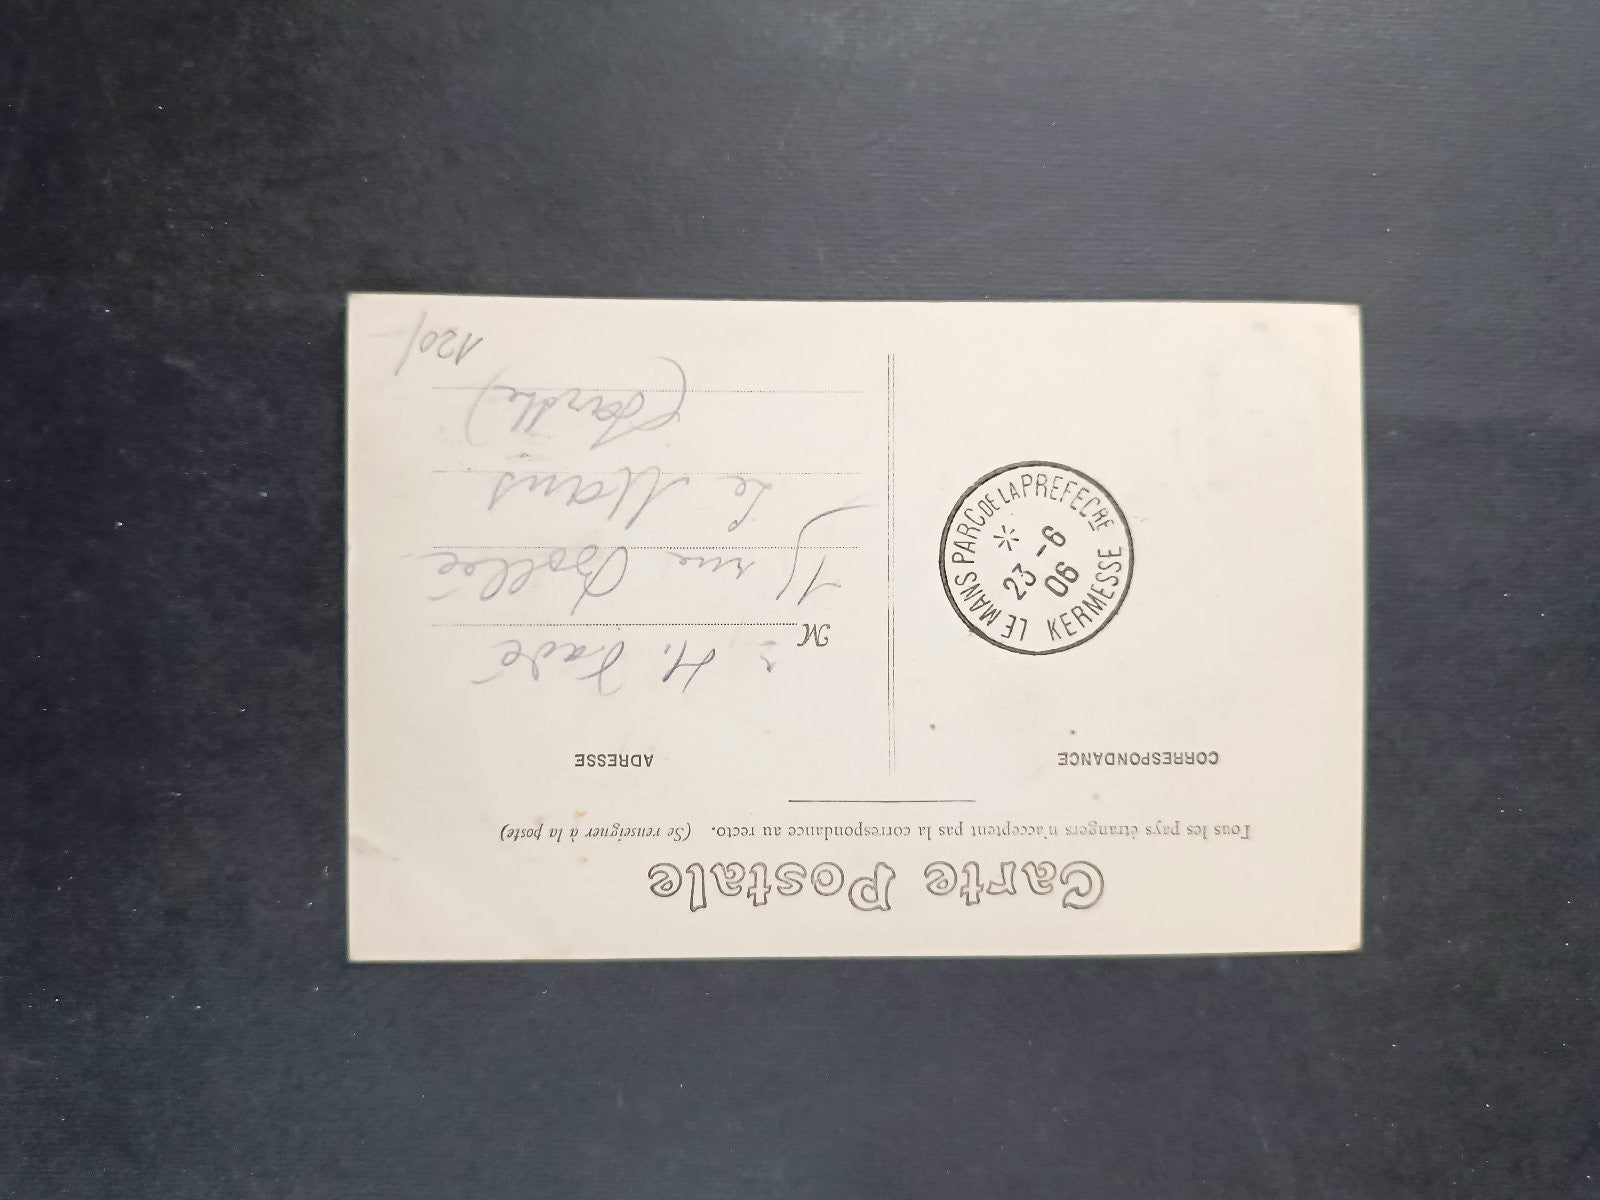 Carte Postale
Tous les pays étrangers n'acceptent pas la correspondance au recto. (Se renseigner à la poste)
CORRESPONDANCE
ADRESSE
LE MANS PARC DE LA PREFECRE
23 -6
06
KERMESSE
M
rue Bollée
Le Mans
(Sarthe)
120/-